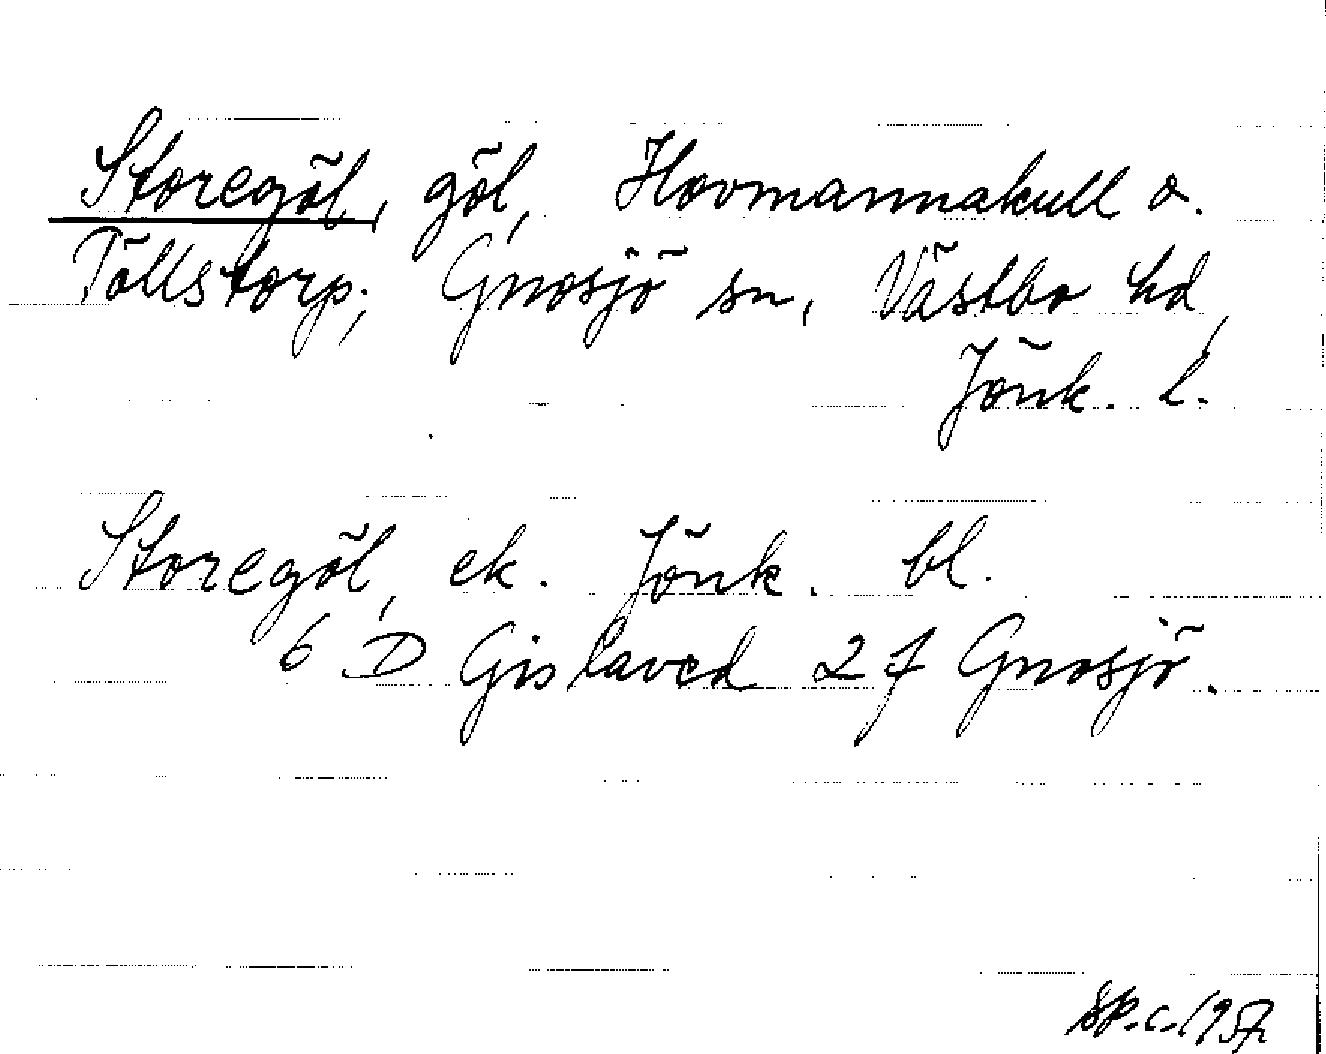 Storegöl, göl, Hovmannakull o.
Töllstorp, Gnosjö sn, Västbo hd,
Jönk. l.
Storegöl, ek. Jönk. bl.
6 D Gislaved 2 f Gnosjö.
1957